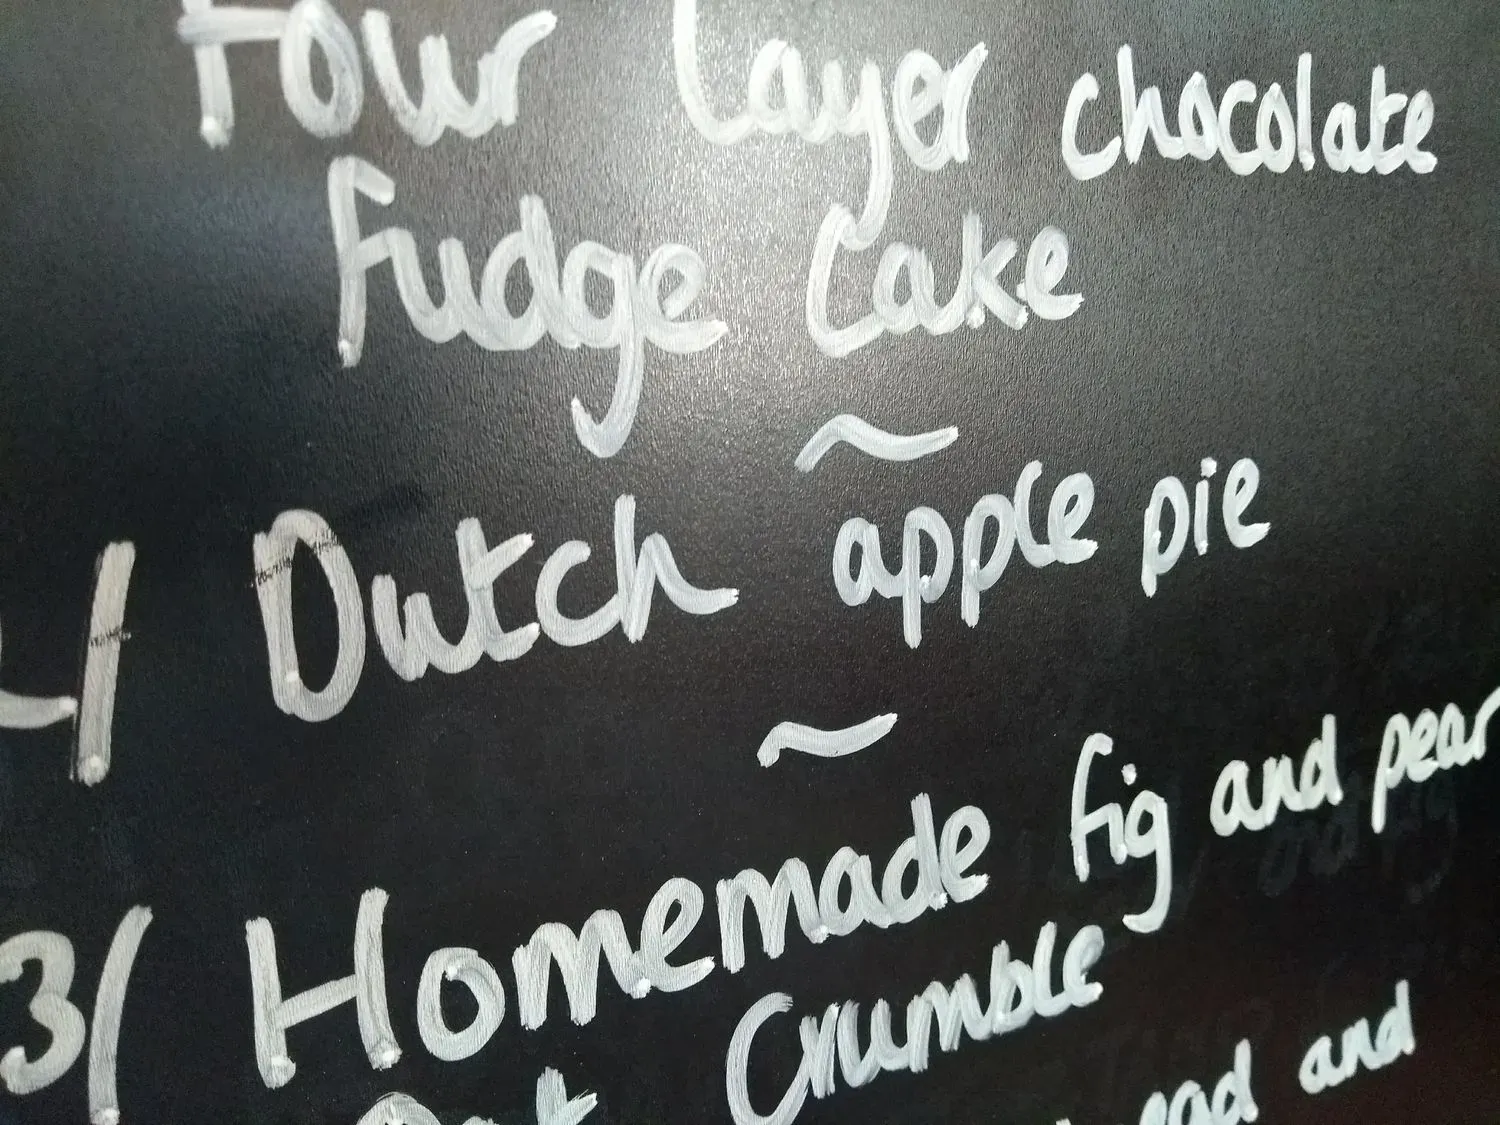 Four Layer chocolate
Fudge Cake
~
2/ Dutch apple pie
~
3/ Homemade fig and pear
Crumble
and